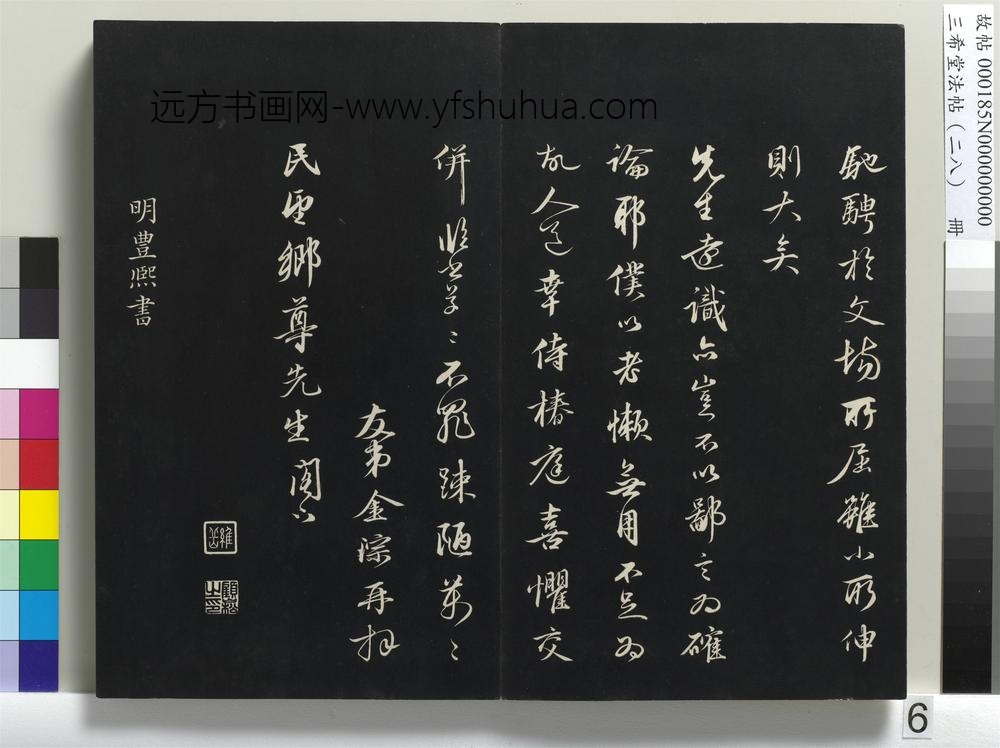 馳騁於文場所屈雖小所伸
則大矣
先生遠識亦豈不以鄙言為確
論耶僕以老懶無用不足為
故人道幸侍椿庭喜懼交
併臨書草〻不罷踈陋万〻
友弟金淙再拜
民望鄉尊先生閣下
明豊熙書
远方书画网-www.yfshuhua.com
故帖 000185N000000000
三希堂法帖(二八) 冊
6